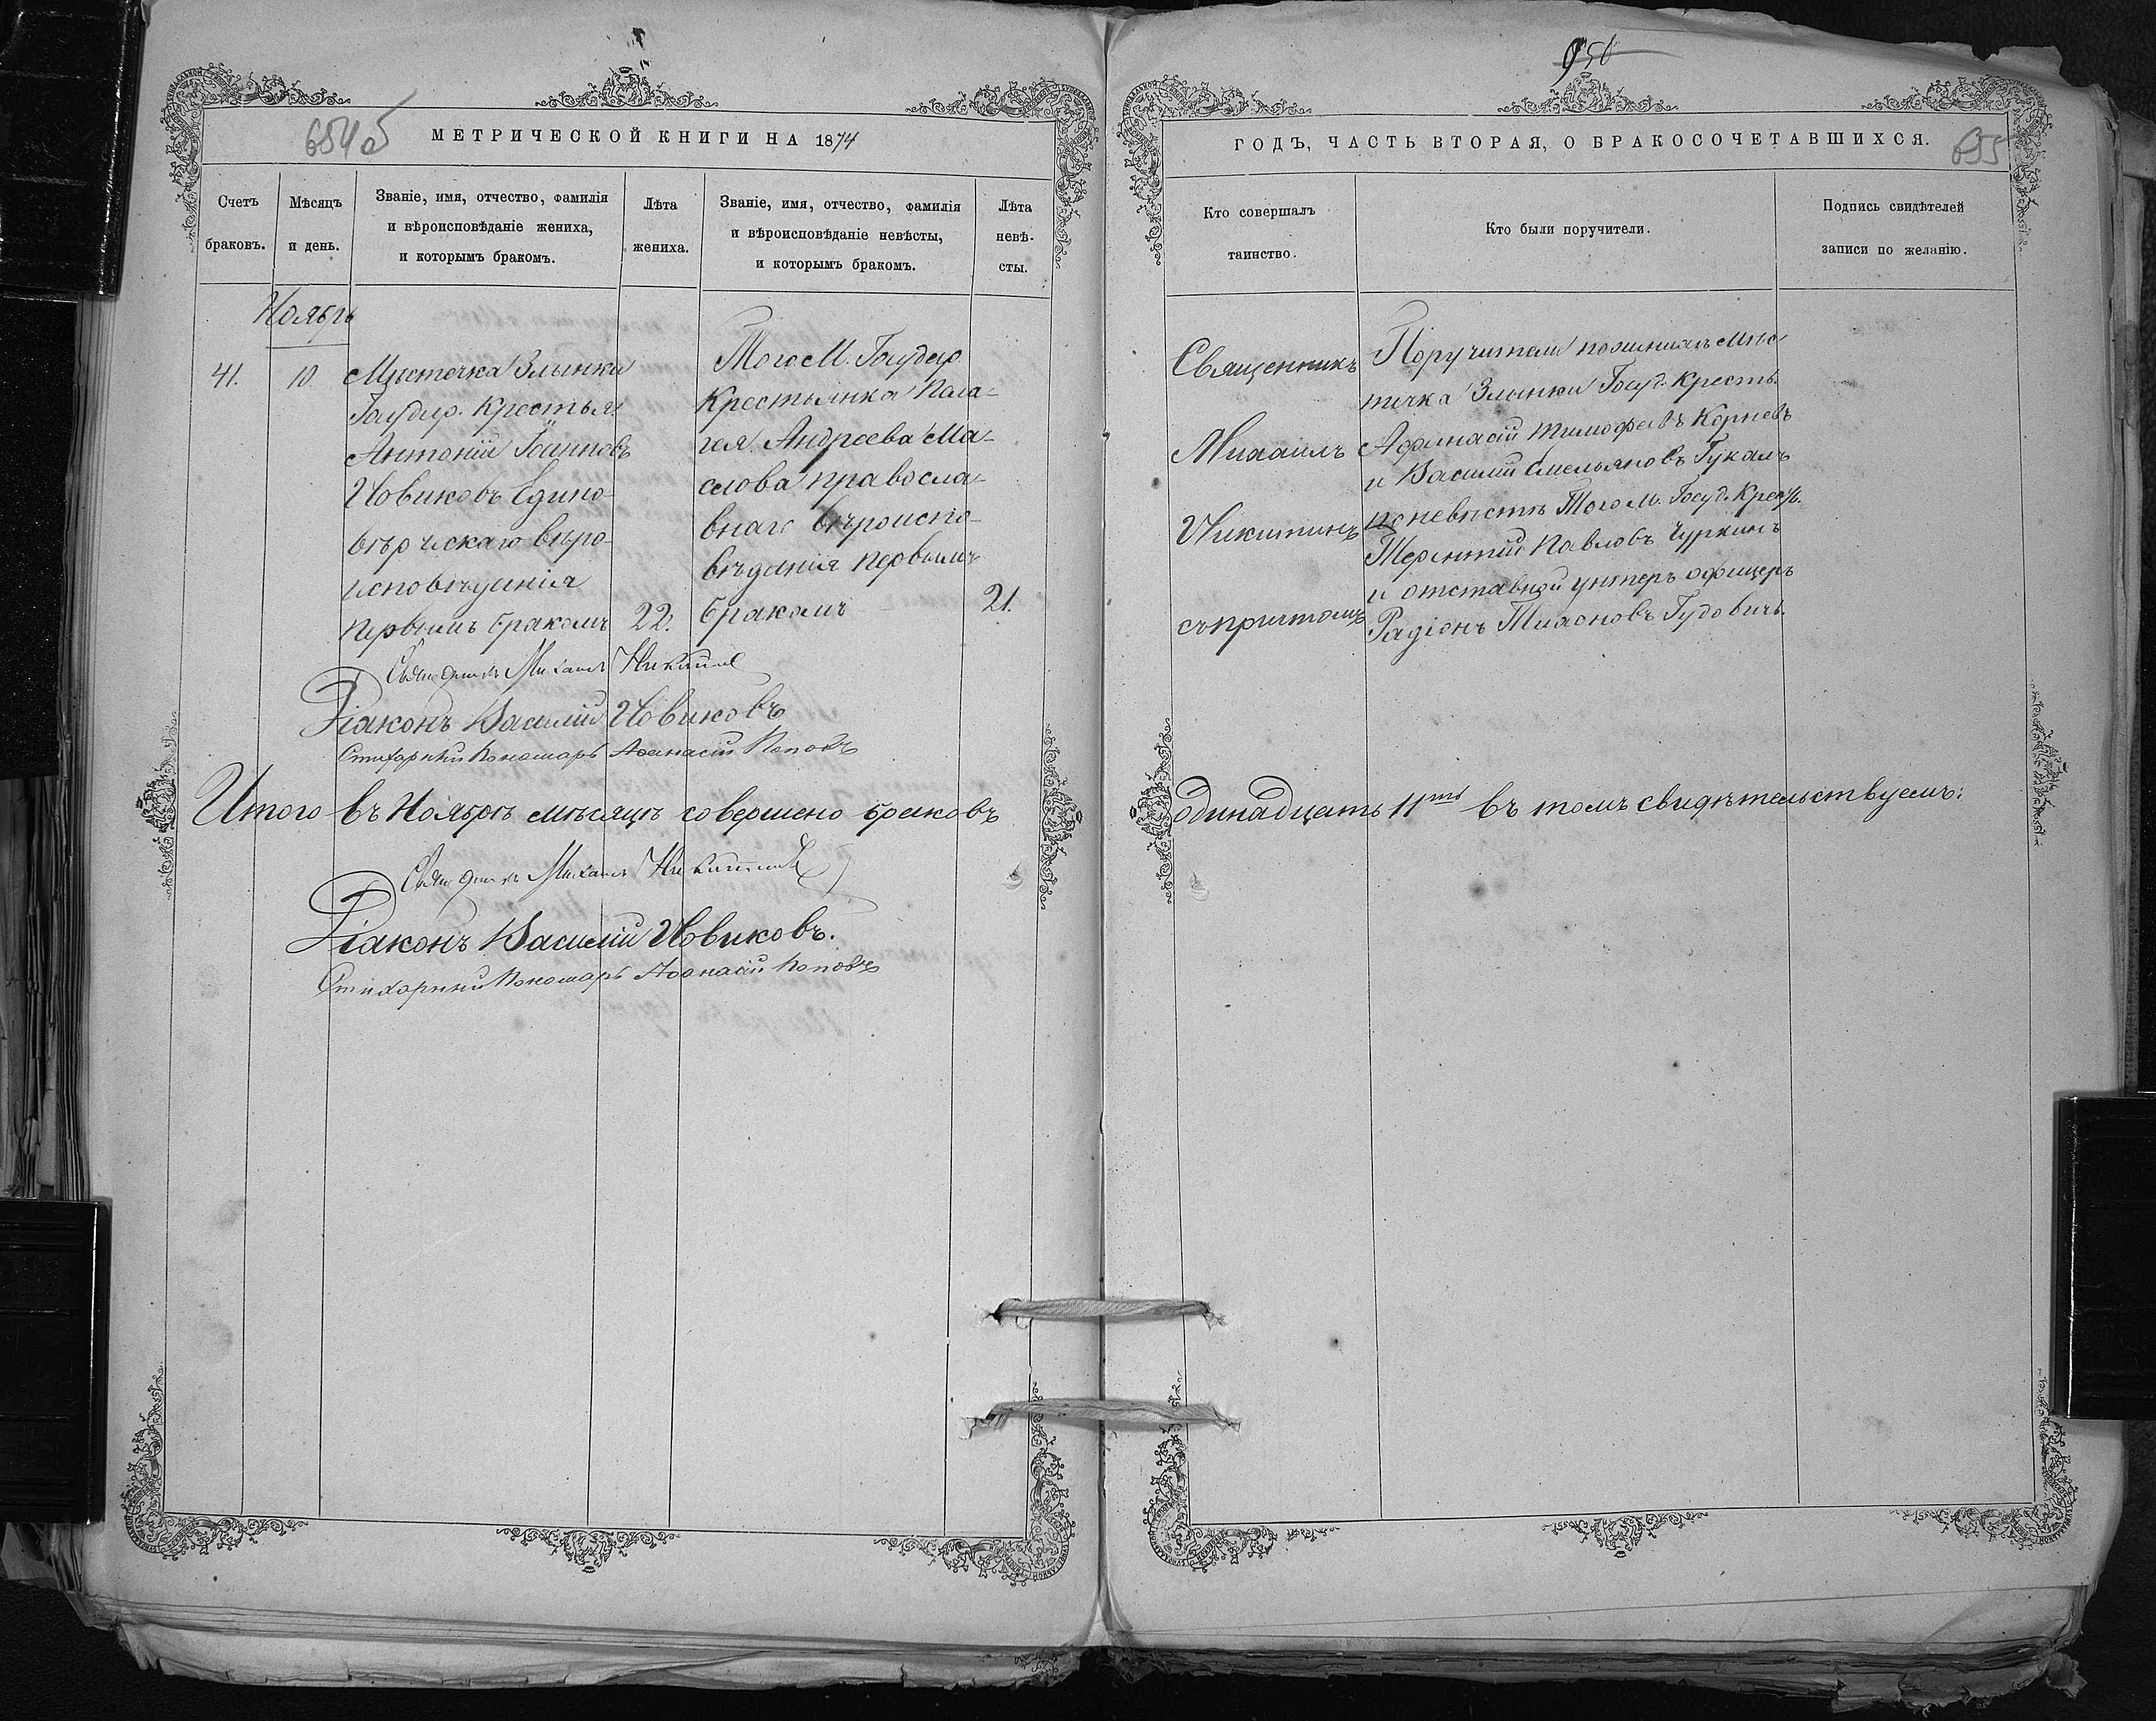 950
654об
МЕТРИЧЕСКОЙ КНИГИ НА 1874
Счетъ
браковъ.
Мѣсяцъ
и день.
Званіе, имя, отчество, фамилія
и вѣроисповѣданіе жениха,
и которымъ бракомъ.
Лѣта
жениха.
Званіе, имя, отчество, фамилія
и вѣроисповѣданіе невѣсты,
и которымъ бракомъ.
Лѣта
невѣ-
сты.
Ноябрь
41.
10.
Мѣстечка Злынки
Государ. Крестья.
Антоній Іоанновъ
Новиковъ Едино-
вѣрческаго вѣро-
исповѣданія
первымъ бракомъ
22.
Того М. Государ.
Крестьянка Пела-
гея Андреева Ма-
слова православ-
внаго вѣроиспо-
вѣданія первымъ
бракомъ
21.
Священникъ Михаилъ Никитинъ
Діаконъ Василій Новиковъ
Стихарный Пономарь Аѳанасій Поповъ
Итого въ Ноябрѣ мѣсяцѣ совершено браковъ
Священникъ Михаилъ Никитинъ
Діаконъ Василій Новиковъ.
Стихарный Пономарь Аѳанасій Поповъ
ГОДЪ, ЧАСТЬ ВТОРАЯ, О БРАКОСОЧЕТАВШИХСЯ.
655
Кто совершалъ
таинство.
Кто были поручители.
Подпись свидѣтелей
записи по желанію.
Священникъ
Михаилъ
Никитинъ
съ причтомъ
Поручители по женихѣ мѣс-
течка Злынки Госуд. Кресть.
Афанасій Тимофеевъ Корневъ
и Василій Емельяновъ Гукалъ
по невѣстѣ Того м. Госуд. Крест.
Терентій Павловъ Чуркинъ
и отставной унтеръ офицеръ
Радіонъ Тихоновъ Гудовичъ.
одинадцать 11ть въ томъ свидѣтельствуемъ: